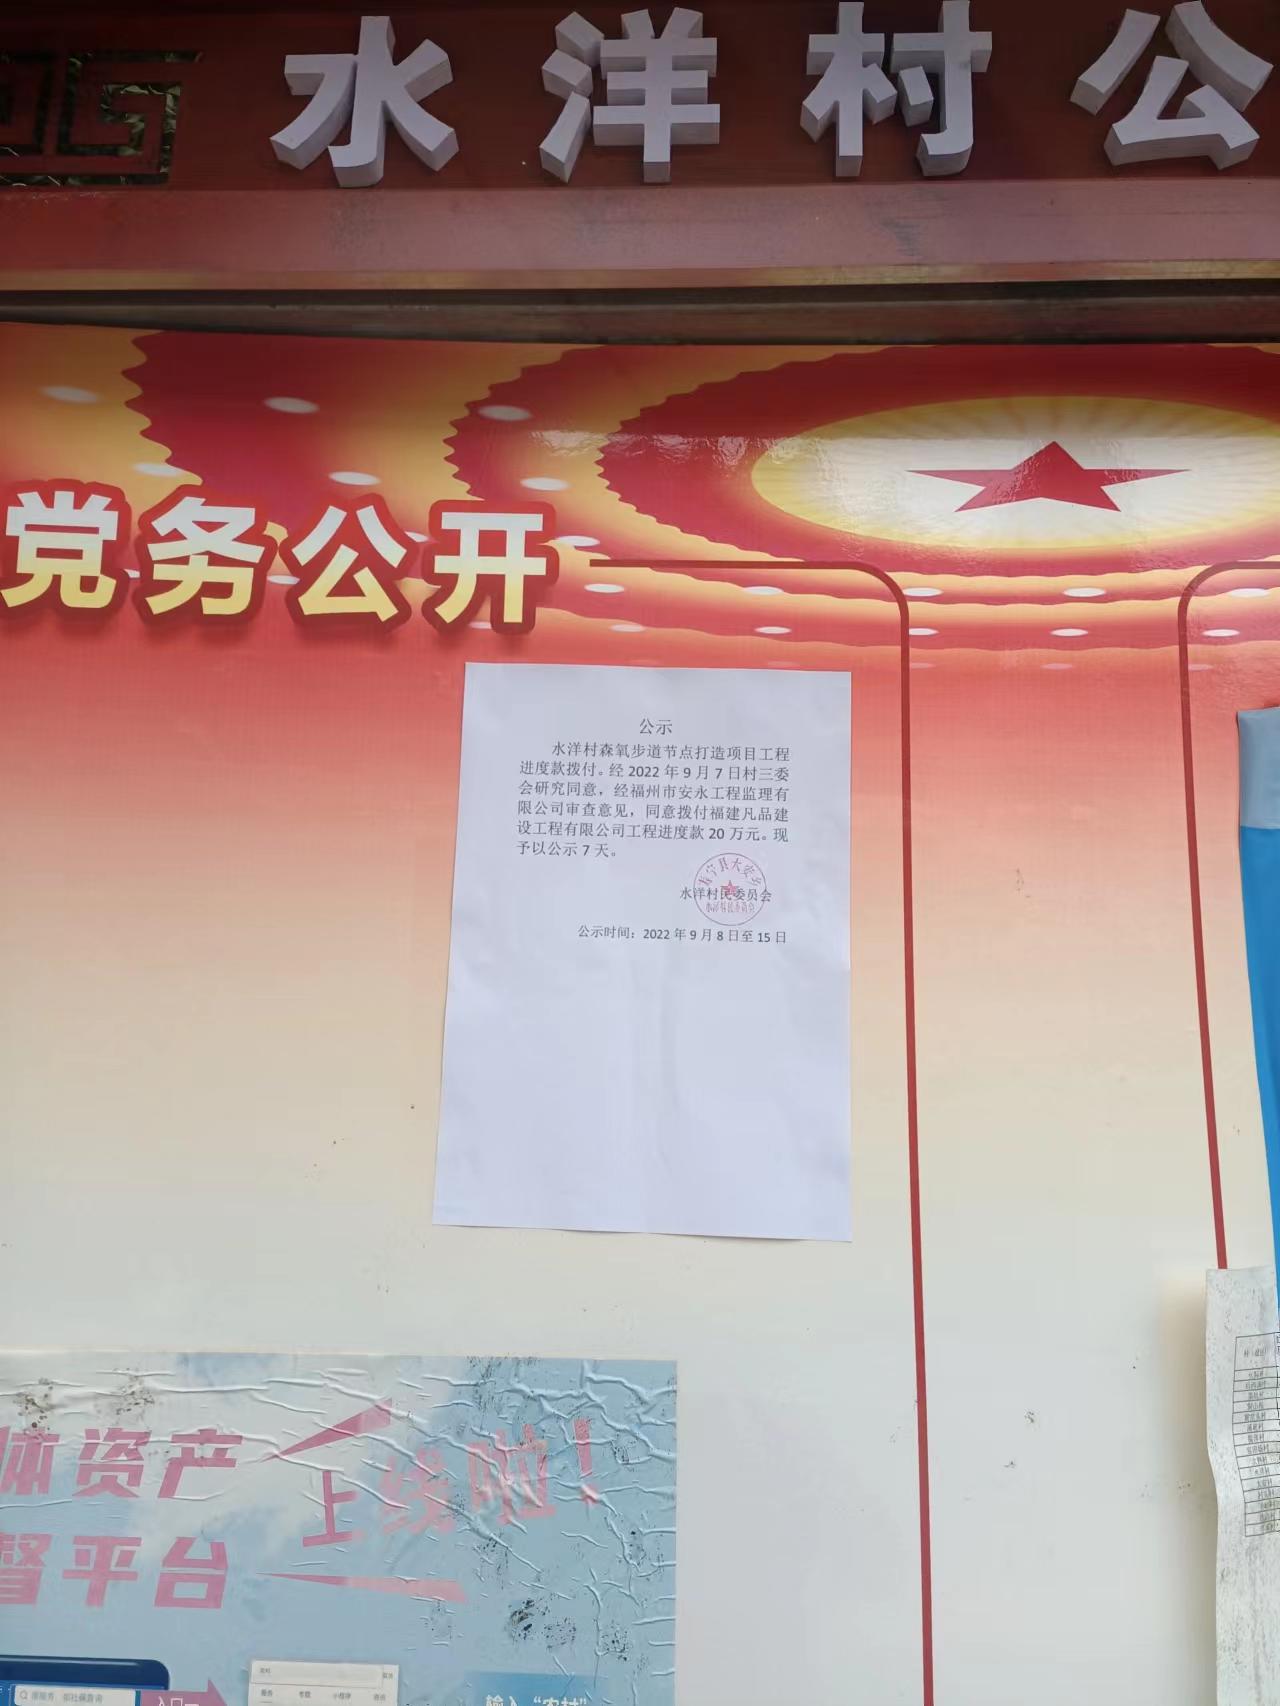 水洋村公
党务公开
公示
水洋村森氧步道节点打造项目工程
进度款拨付。经 2022 年 9 月 7 日村三委
会研究同意，经福州市安永工程监理有
限公司审查意见，同意拨付福建凡品建
设工程有限公司工程进度款 20 万元。现
予以公示 7 天。
寿宁县大安乡
水洋村民委员会
水洋村民委员会
公示时间：2022 年 9 月 8 日至 15 日
体资产
上线啦！
督平台
输入“农村”